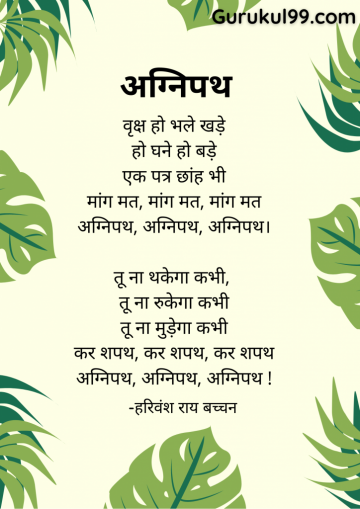 Gurukul99.com
अग्निपथ
वृक्ष हो भले खड़े
हो घने हो बड़े
एक पत्र छांह भी
मांग मत, मांग मत, मांग मत
अग्निपथ, अग्निपथ, अग्निपथ।
तू ना थकेगा कभी,
तू ना रुकेगा कभी
तू ना मुड़ेगा कभी
कर शपथ, कर शपथ, कर शपथ
अग्निपथ, अग्निपथ, अग्निपथ !
-हरिवंश राय बच्चन